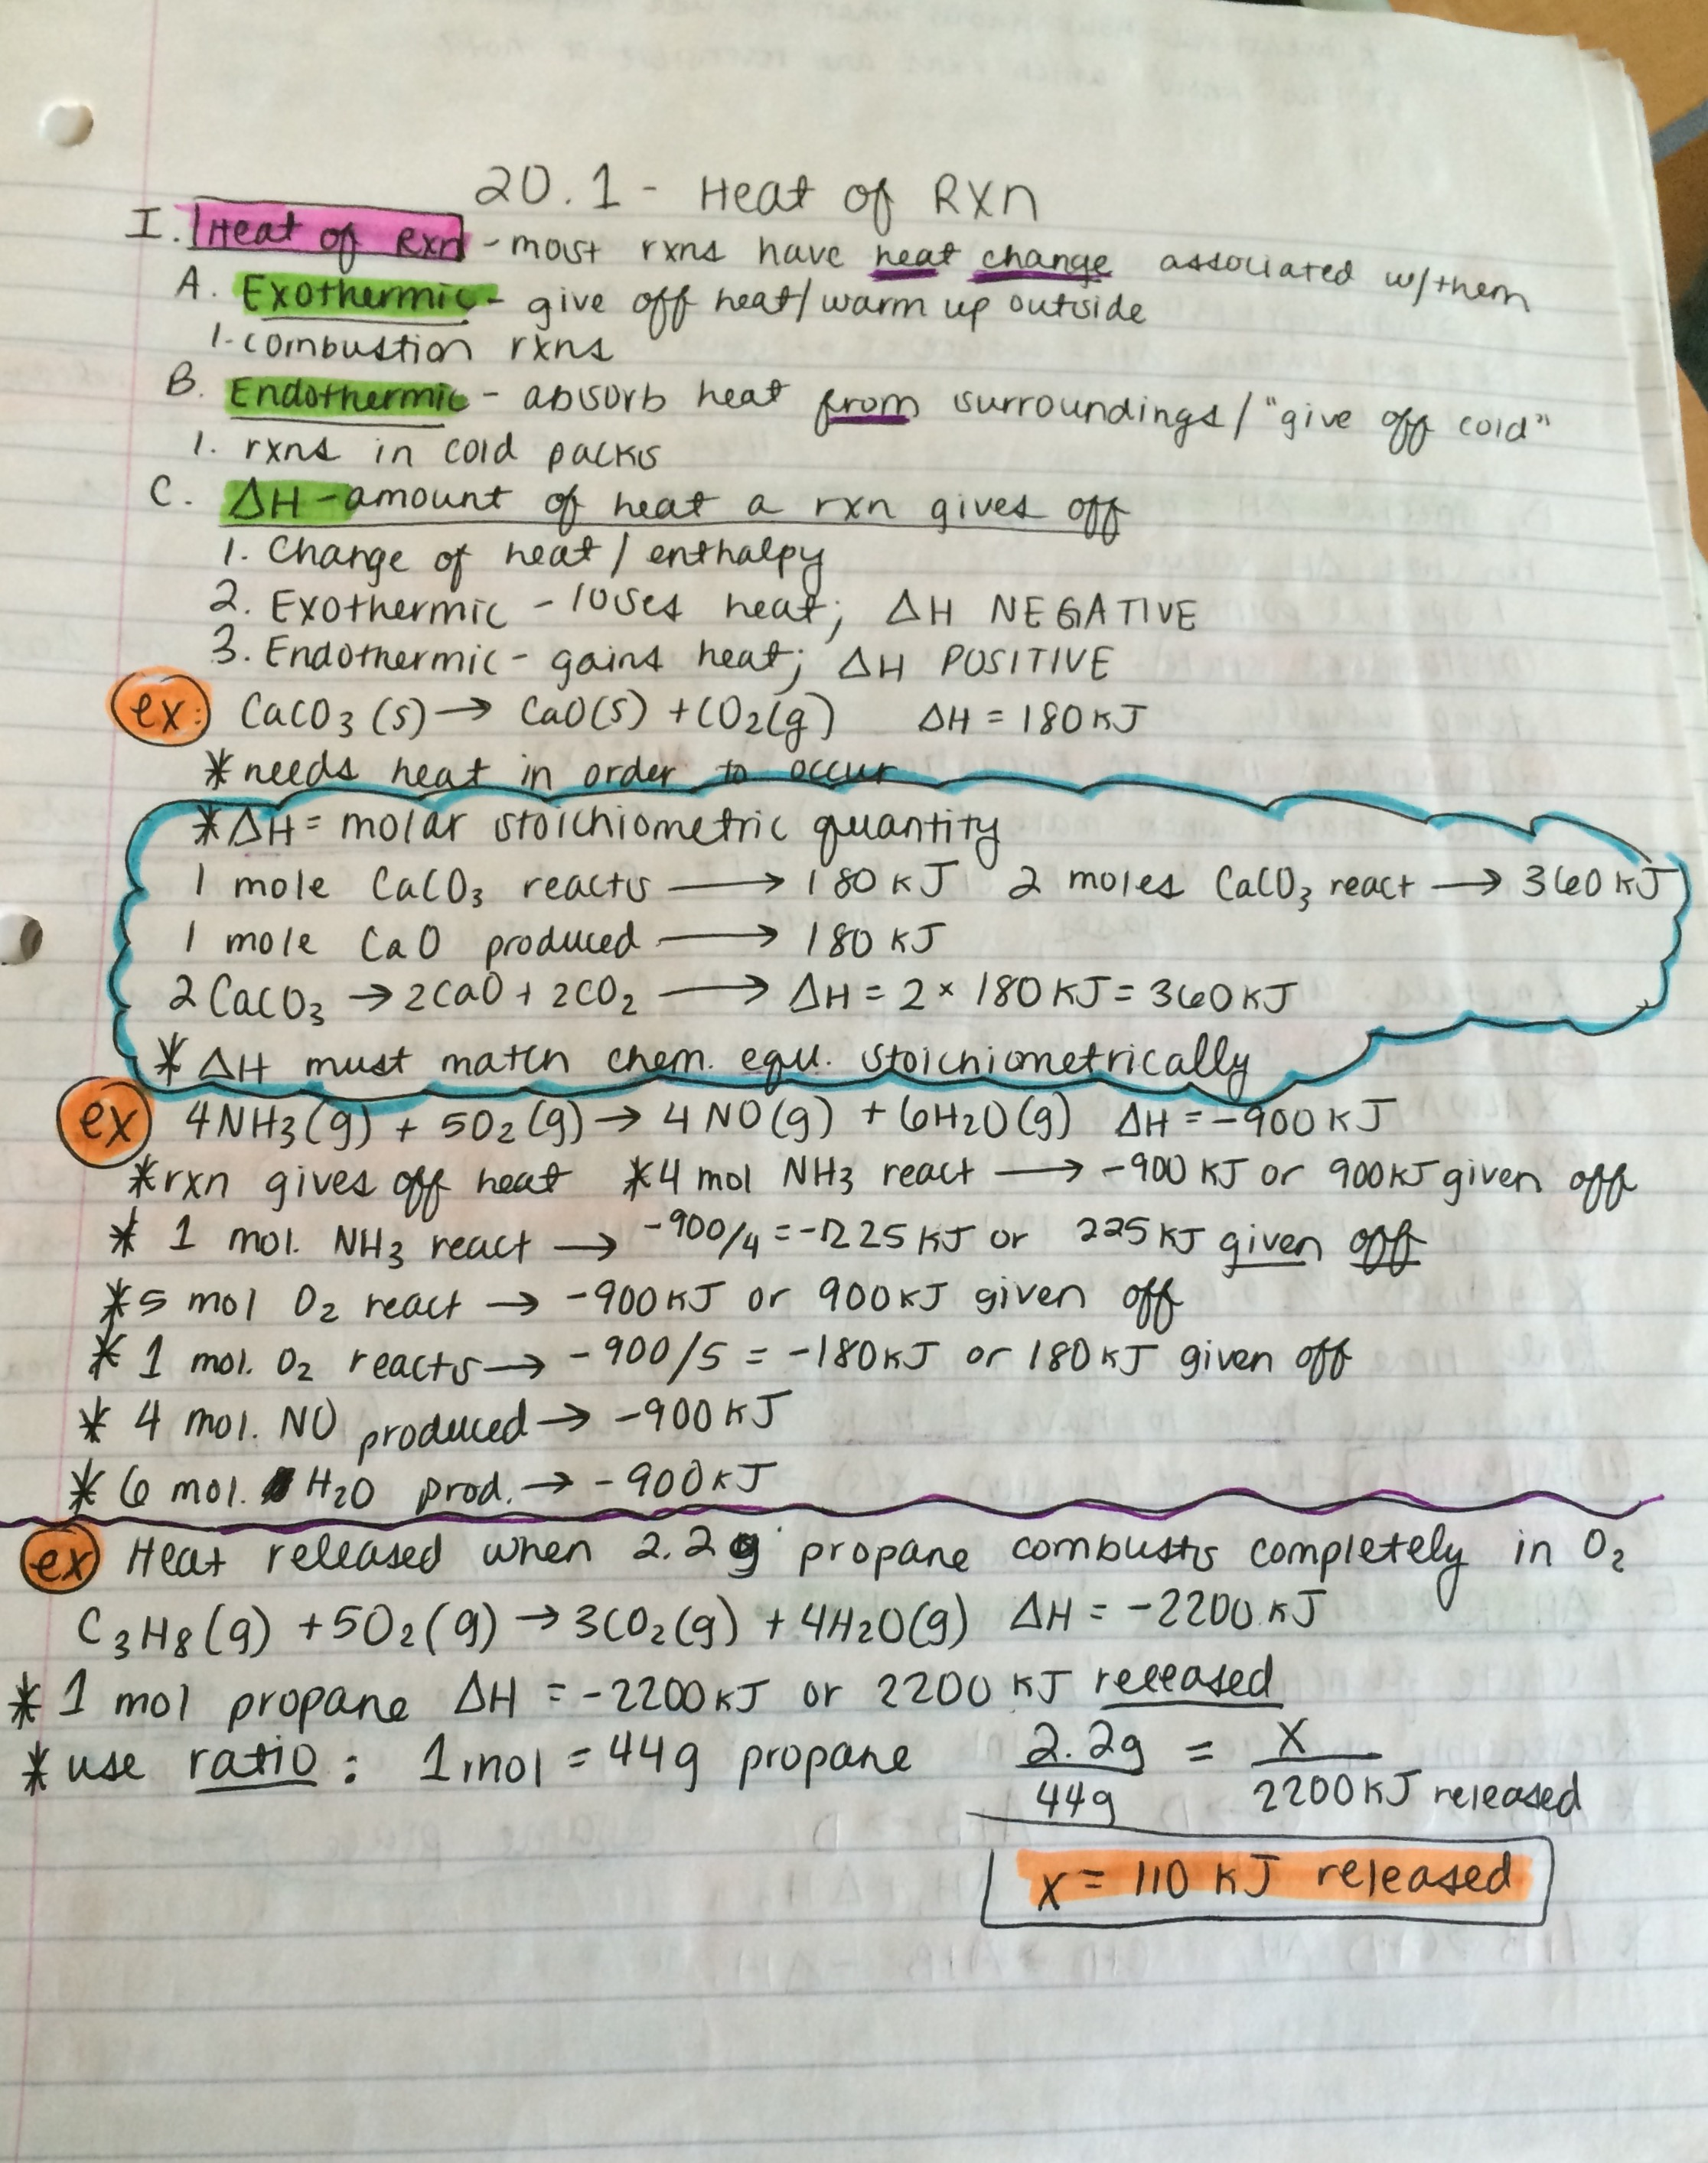 20.1 - Heat of Rxn
I. Heat of Rxn - most rxns have heat change associated w/them
A. Exothermic - give off heat/warm up outside
1. combustion rxns
B. Endothermic - absorb heat from surroundings/"give off cold"
1. rxns in cold packs
C. ΔH - amount of heat a rxn gives off
1. Change of heat/enthalpy
2. Exothermic - loses heat; ΔH NEGATIVE
3. Endothermic - gains heat; ΔH POSITIVE
ex: CaCO3 (s) → CaO(s) + CO2(g) ΔH = 180 KJ
*needs heat in order to occur
*ΔH = molar stoichiometric quantity
1 mole CaCO3 reacts → 180 KJ 2 moles CaCO3 react → 360 KJ
1 mole CaO produced → 180 KJ
2CaCO3 → 2CaO + 2CO2 → ΔH = 2 × 180 KJ = 360 KJ
* ΔH must match chem. equ. stoichiometrically
ex 4NH3(g) + 5O2(g) → 4NO(g) + 6H2O(g) ΔH = -900 KJ
*rxn gives off heat *4 mol NH3 react → -900 KJ or 900 KJ given off
* 1 mol. NH3 react → -900/4 = -225 KJ or 225 KJ given off
*5 mol O2 react → -900 KJ or 900 KJ given off
* 1 mol. O2 reacts → -900/5 = -180 KJ or 180 KJ given off
* 4 mol. NO produced → -900 KJ
* 6 mol. H2O prod. → -900 KJ
ex Heat released when 2.2g propane combusts completely in O2
C3H8(g) + 5O2(g) → 3CO2(g) + 4H2O(g) ΔH = -2200 KJ
* 1 mol propane ΔH = -2200 KJ or 2200 KJ released
*use ratio: 1 mol = 44g propane 2.2g/44g = X/2200 KJ released
x = 110 KJ released